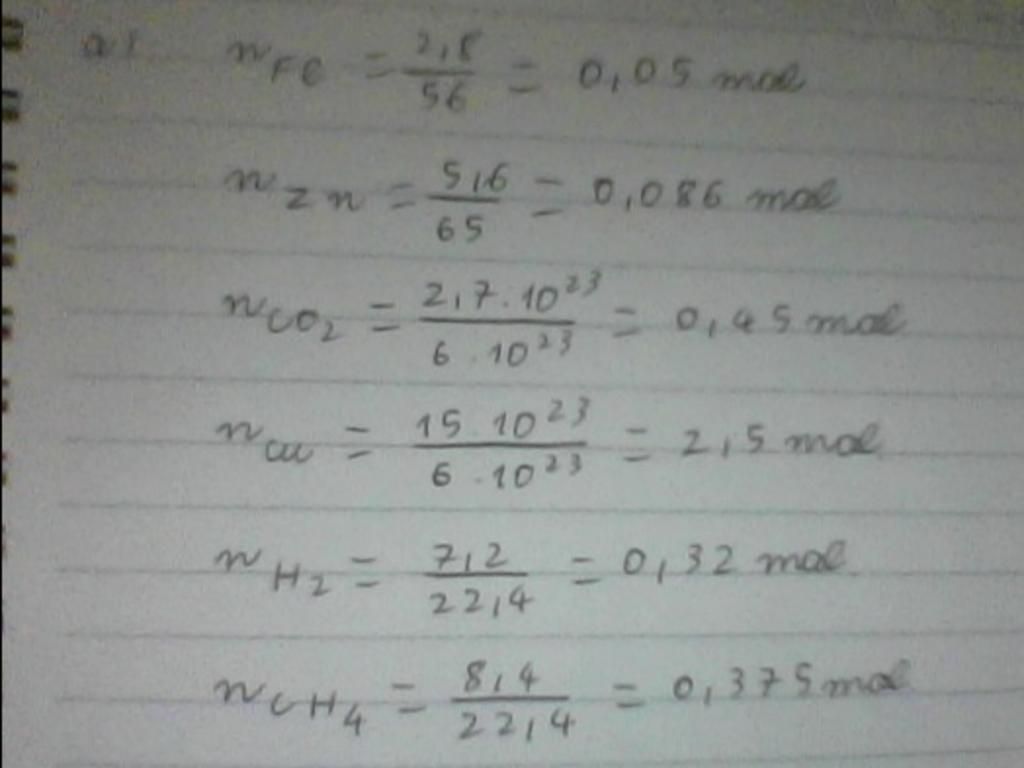 a) n_Fe = 2,8/56 = 0,05 mol
n_Zn = 5,6/65 = 0,086 mol
n_CO₂ = 2,7.10²³/6.10²³ = 0,45 mol
n_Cu = 15.10²³/6.10²³ = 2,5 mol
n_H₂ = 7,2/22,4 = 0,32 mol
n_CH₄ = 8,4/22,4 = 0,375 mol